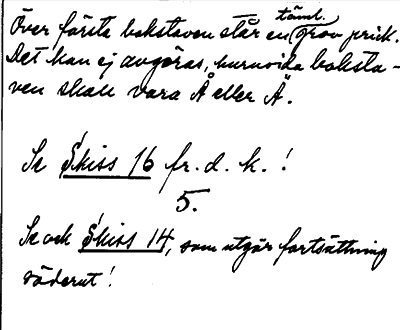 Över första bokstaven står en täml. grov prick.
Det kan ej avgöras, huruvida boksta-
ven skall vara Å eller Ä.
Se Skiss 16 fr. d. k. !
5.
Se och Skiss 14, som utgör fortsättning
söderut !